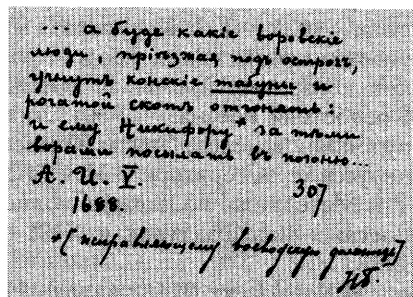 ... а буде какіе воровскіе
люди, пріѣзжая подъ острогъ,
учнутъ конскіе табуны и
рогатой скотъ отгонять:
и ему Никифору* за тѣми
ворами посылать въ погоню...
А. И. V. 307
1688.
*[исправляющему воеводскую должность]
НБ.